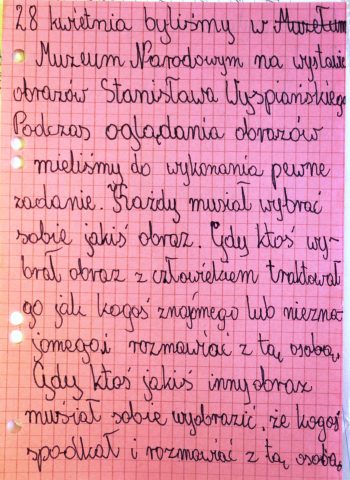 28 kwietnia byliśmy w Muzełum
Muzeum Narodowym na wystawie
obrazów Stanisława Wyspiańskiego
Podczas oglądania obrazów
mieliśmy do wykonania pewne
zadanie. Każdy musiał wybrać
sobie jakiś obraz. Gdy ktoś wy-
brał obraz z człowiekiem traktował
go jak kogoś znajmego lub niezna-
jomego i rozmawiać z tą osobą.
Gdy ktoś jakiś inny obraz
musiał sobie wyobrazić, że kogoś
spodkał i rozmawiać z tą osobą